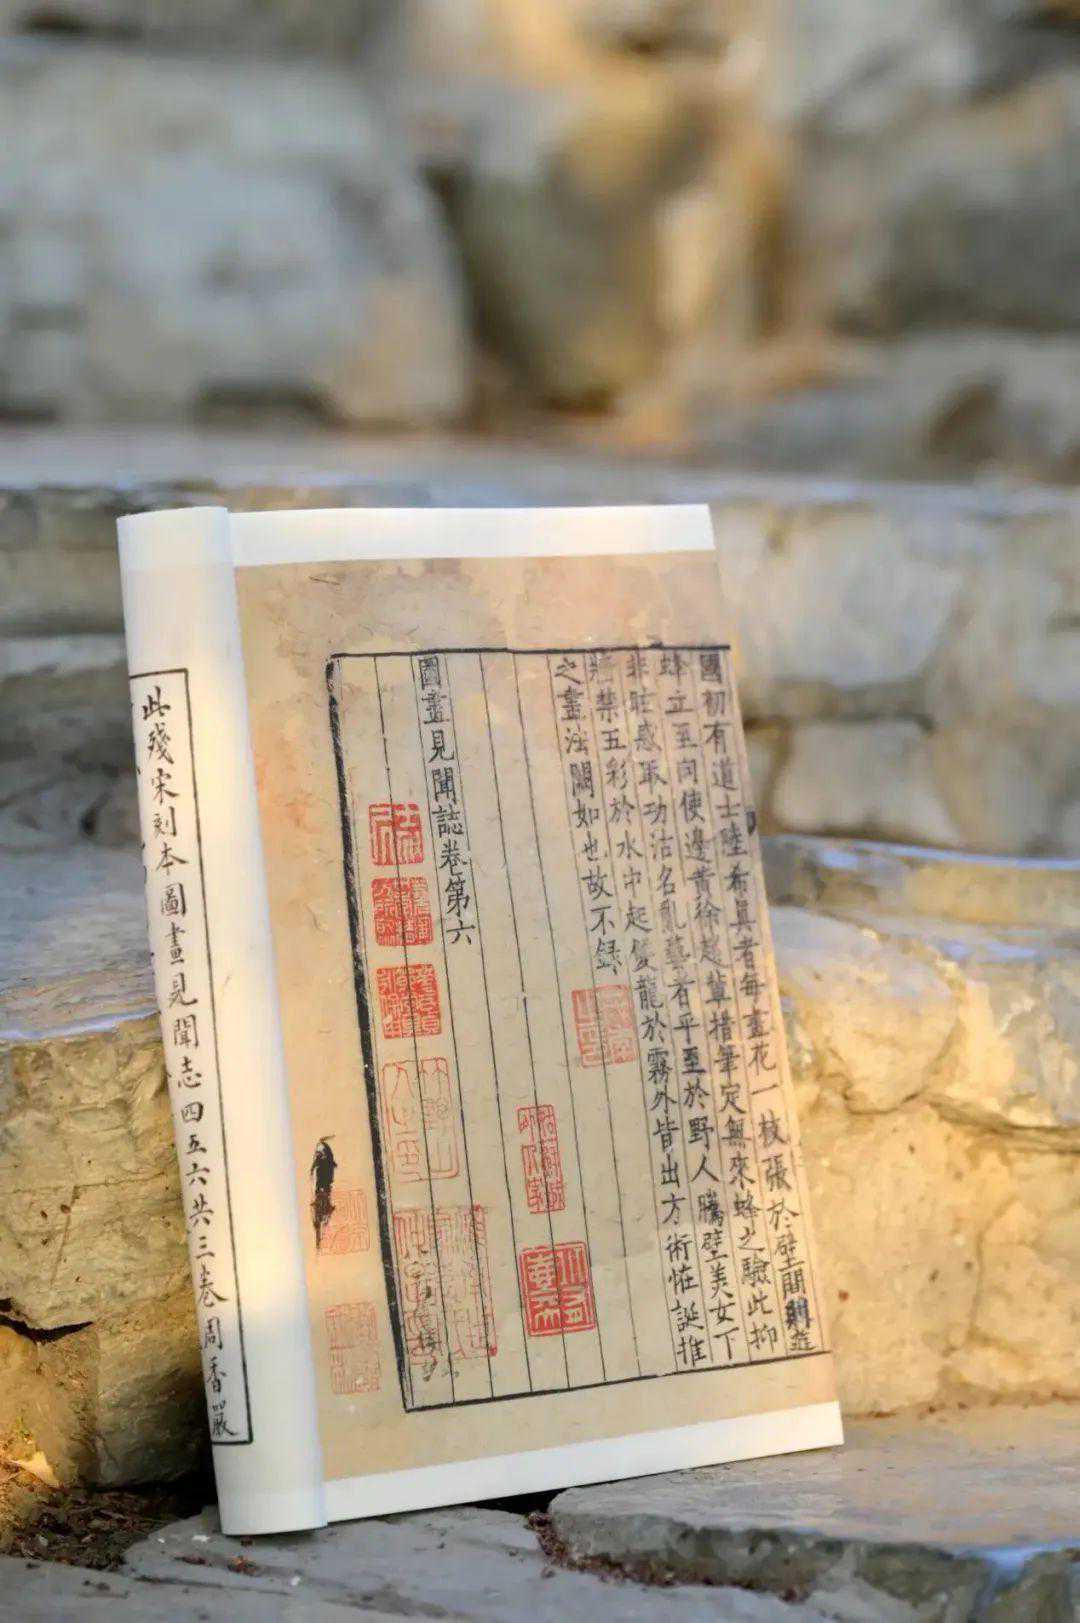 國初有道士陸希真者每畫花一枝張於壁間則遊
蜂立至向使邊黃徐趙輩措筆定無來蜂之驗此抑
非眩惑取功沽名亂藝者乎至於野人騰壁美女下
牆禁五彩於水中起雙龍於霧外皆出方術恠誕推
之畫法闕如也故不録
圖畫見聞誌卷第六
此殘宋刻本圖畫見聞志四五六共三卷周香嚴